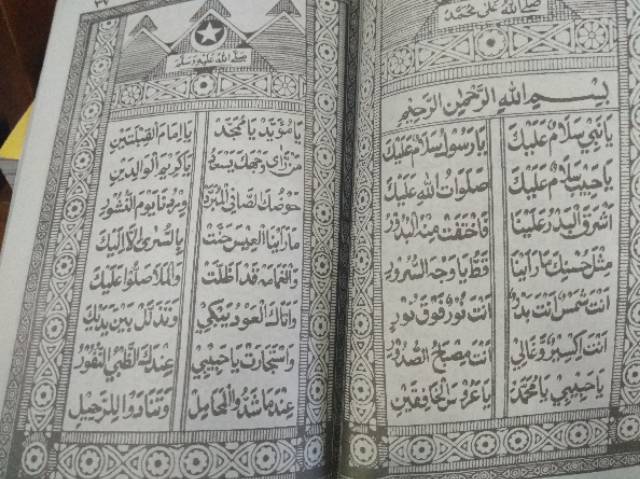 صلى الله على محمد
بسم الله الرحمن الرحيم
يا نبي سلام عليك يا رسول سلام عليك
يا حبيب سلام عليك صلوات الله عليك
أشرق البدر علينا فاختفت منه البدور
مثل حسنك ما رأينا قط يا وجه السرور
أنت شمس أنت بدر أنت نور فوق نور
أنت إكسير وغالي أنت مصباح الصدور
يا حبيبي يا محمد يا عروس الخافقين
صلى الله عليه وسلم
يا مؤيد يا ممجد يا إمام القبلتين
من رأى وجهك يسعد يا كريم الوالدين
حوضك الصافي المبرد وردنا يوم النشور
ما رأينا العيس حنت بالسرى إلا إليك
والغمامه قد أظلت والملا صلوا عليك
وأتاك العود يبكي وتذلل بين يديك
واستجارت يا حبيبي عندك الظبي النفور
عند ما شدوا المحامل وتنادوا للرحيل